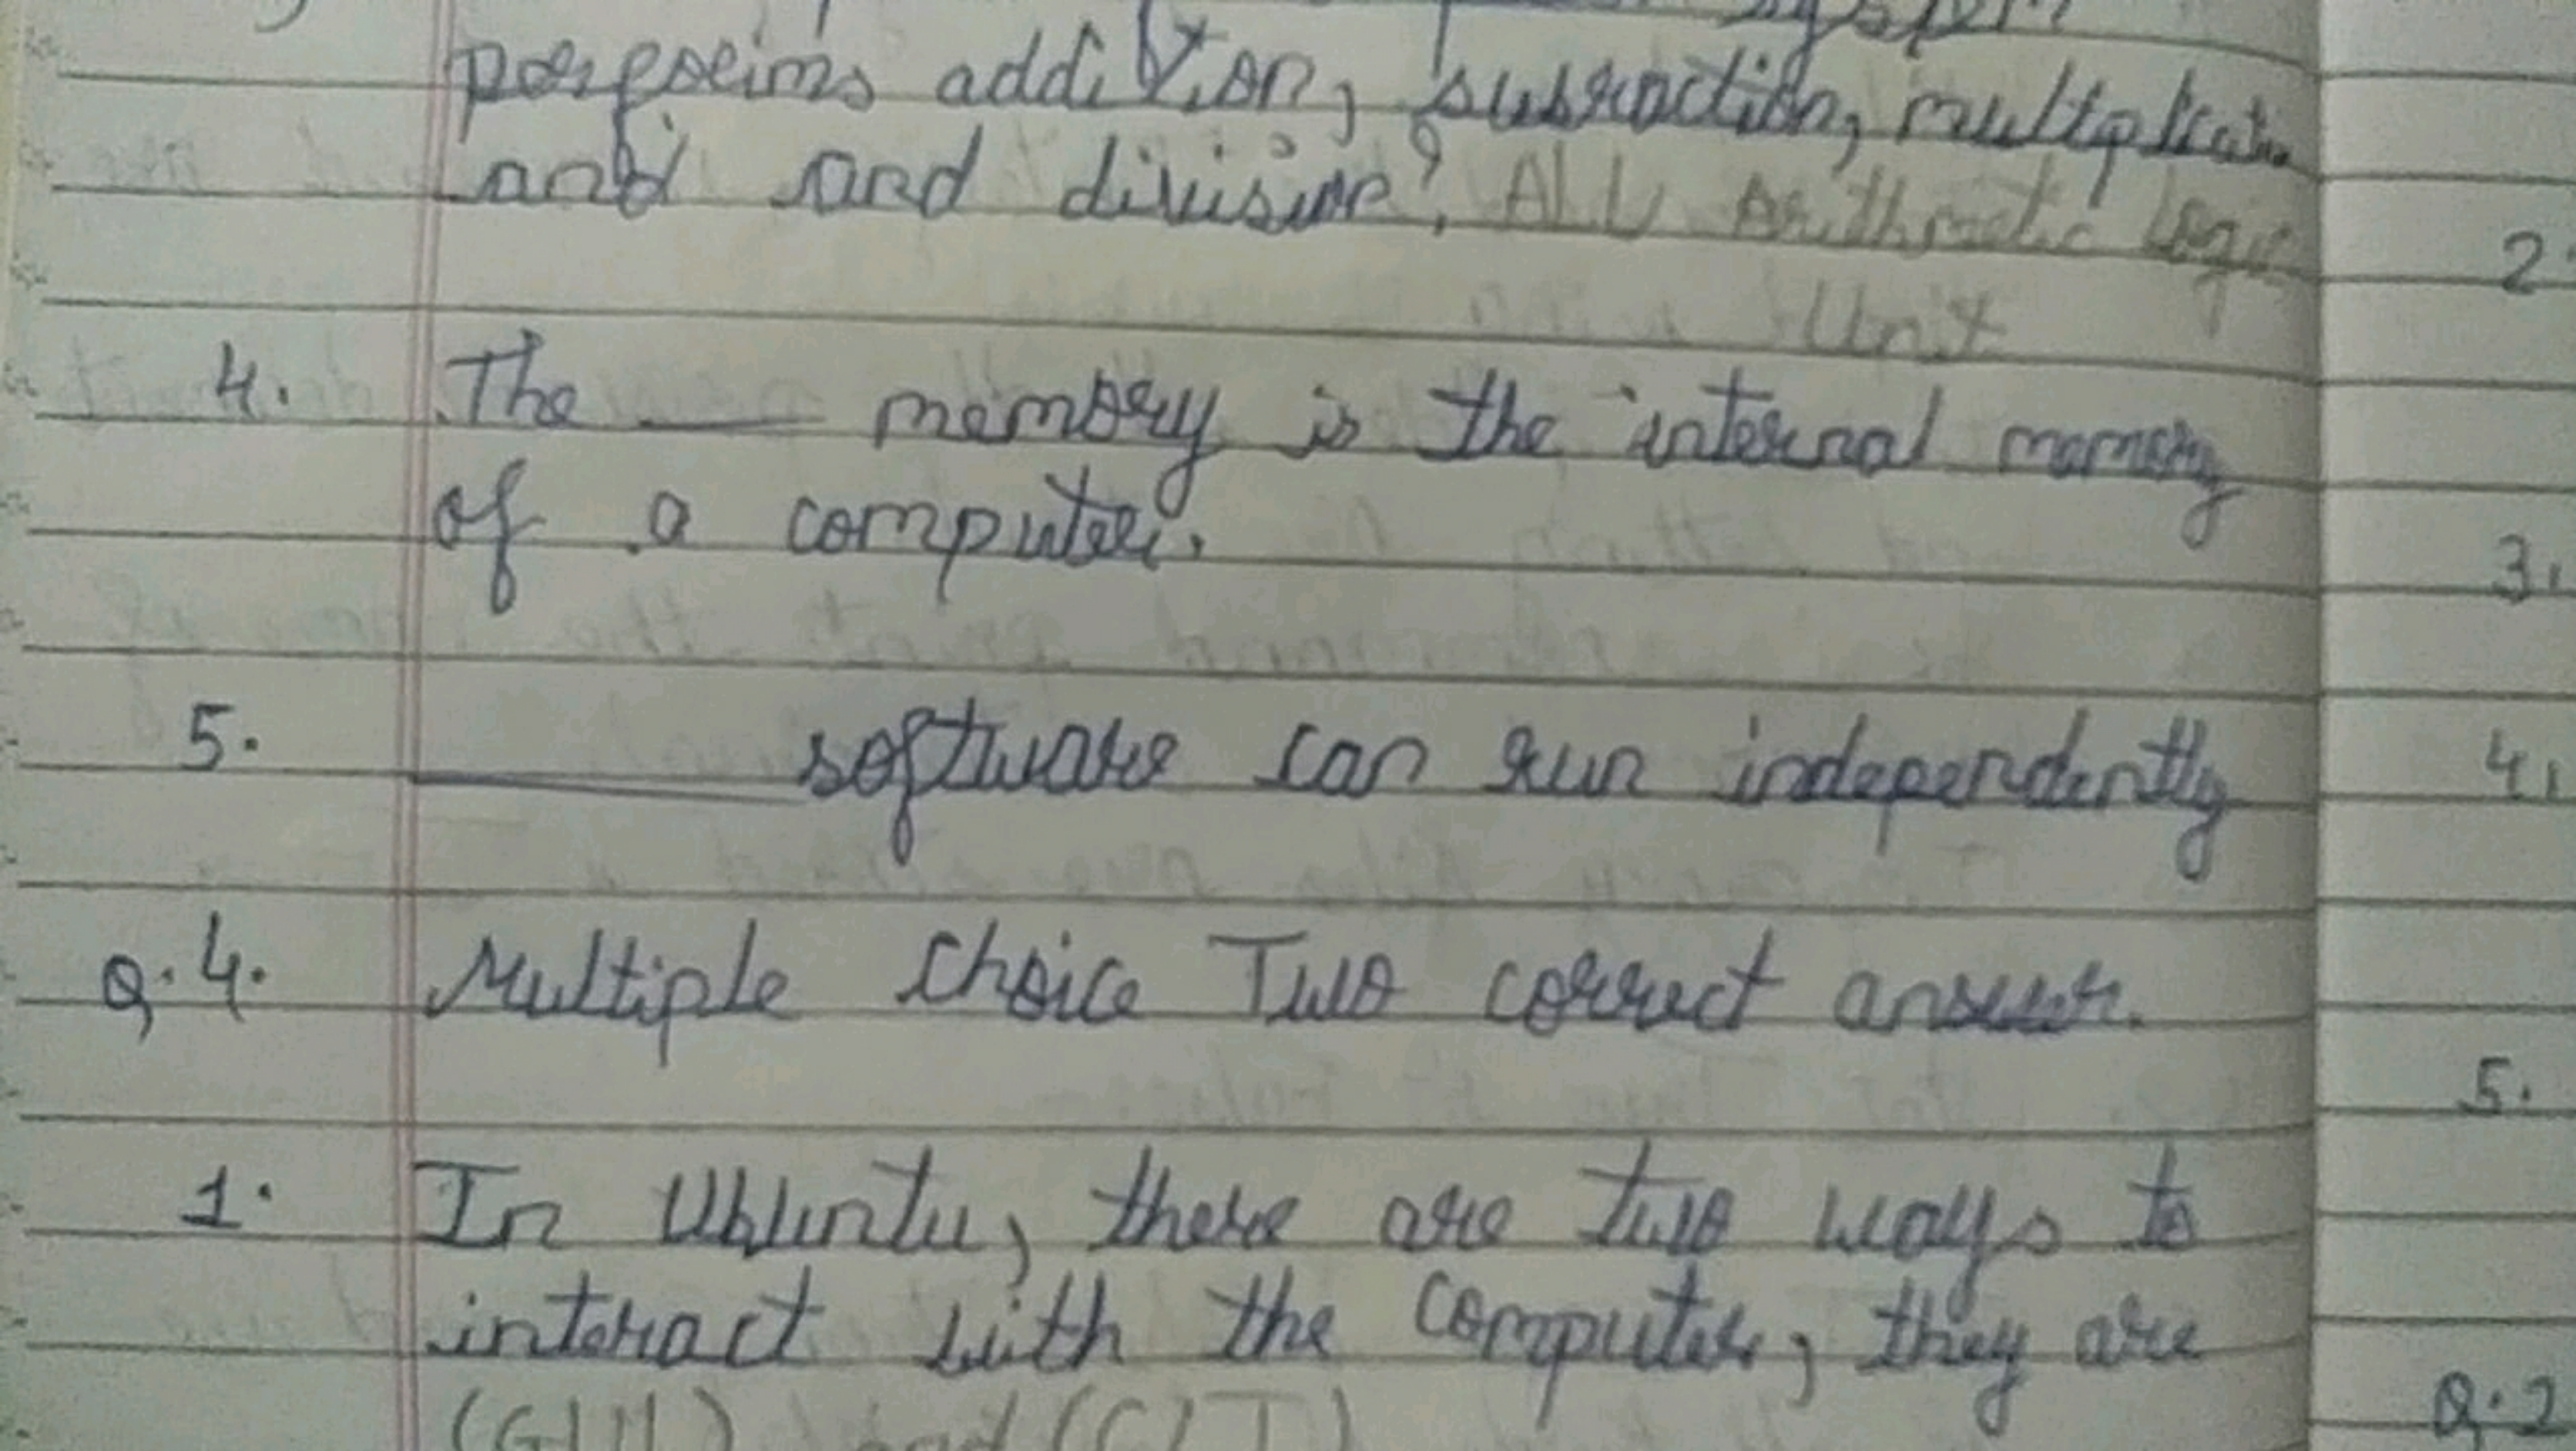 system
performs addition, subtraction, multiplication
and and division? ALU Arithmetic Logic
Unit
2
4. The ___ memory is the internal memory
of a computer.
3.
5. ___ software can run independently
4.
Q.4. Multiple Choice Two correct answer.
5.
1. In Ubuntu, there are two ways to
interact with the computer, they are
(GUI) and (CLI)
Q.2